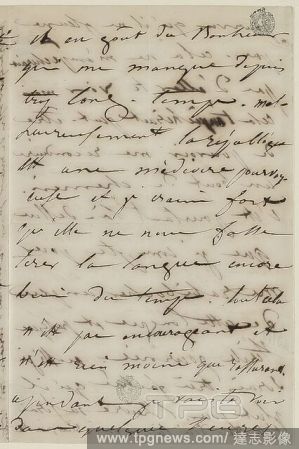 et au goût du Bonheur
qui me manque depuis
trop long-temps. mal-
heureusement, la république
est une médecine pourvoy
euse et je crains fort
qu'elle ne nous fasse
tirer la langue encore
bien du temps tout cela
n'est pas encourageant et
n'est rien moins que rassurant
cependant je vais te voir
dans quelques heures
TPG
www.tpgnews.com / 達志影像